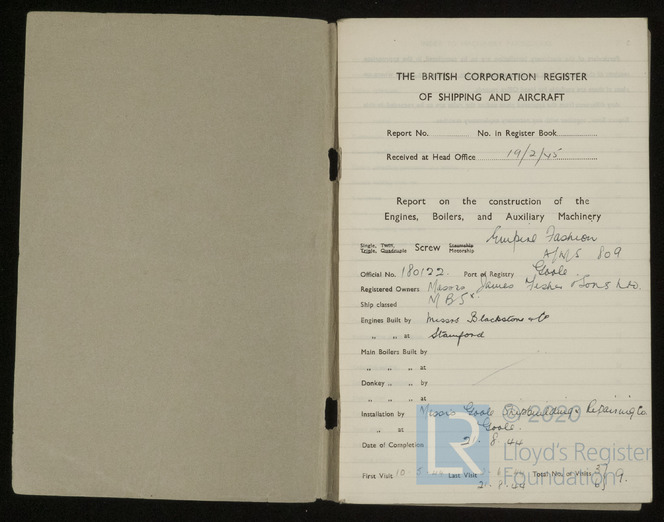 THE BRITISH CORPORATION REGISTER
OF SHIPPING AND AIRCRAFT
Report No. No. in Register Book
Received at Head Office 19/2/45
Report on the construction of the
Engines, Boilers, and Auxiliary Machinery
Single, Twin, Triple, Quadruple Screw Steamship Motorship Empire Fashion
809
Official No. 180122. Port of Registry Goole
Registered Owners Messrs James Fisher & Sons Ltd.
Ship classed M.B.S*
Engines Built by Messrs Blackstone & Co
„ „ at Stamford
Main Boilers Built by
„ „ „ at
Donkey „ „ by
„ „ „ at
Installation by Messrs Goole Shipbuilding & Repairing Co.
„ at Goole.
Date of Completion 21.8.44
First Visit Last Visit 21.8.44 Total No. of Visits
© 2020
LR
Lloyd's Register
Foundation